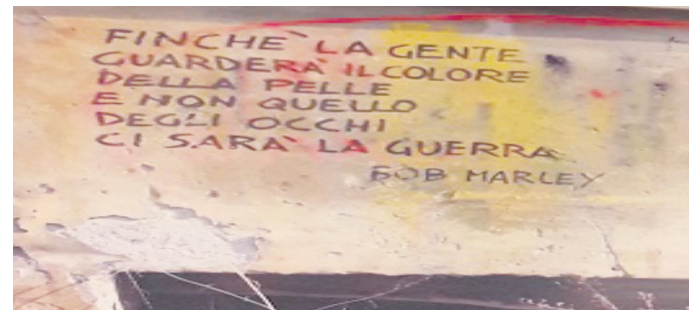 FINCHE` LA GENTE
GUARDERA` IL COLORE
DELLA PELLE
E NON QUELLO
DEGLI OCCHI
CI SARA` LA GUERRA
BOB MARLEY